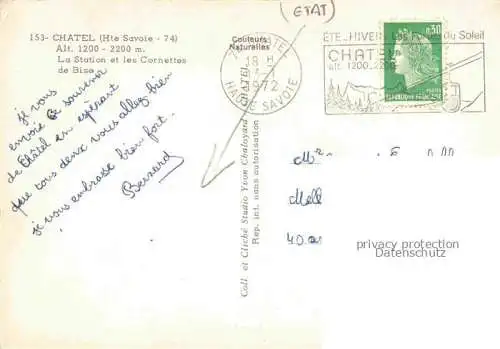 153- CHATEL (Hte Savoie - 74)
Alt. 1200 - 2200 m.
La Station et les Cornettes
de Bise
Couleurs
Naturelles
(ETAT)
18 H
1972
CHATEL
HAUTE SAVOIE
ÉTÉ_HIVER
du Soleil
CHATEL
alt. 1200_2200
0,30
REPUBLIQUE FRANÇAISE
je vous
envoie ce souvenir
de Châtel en espérant
que tous deux vous allez bien
je vous embrasse bien fort.
Bernard
Coll. et Cliché Studio Yvon Chateyard
Rep. int. sans autorisation
privacy protection
Datenschutz